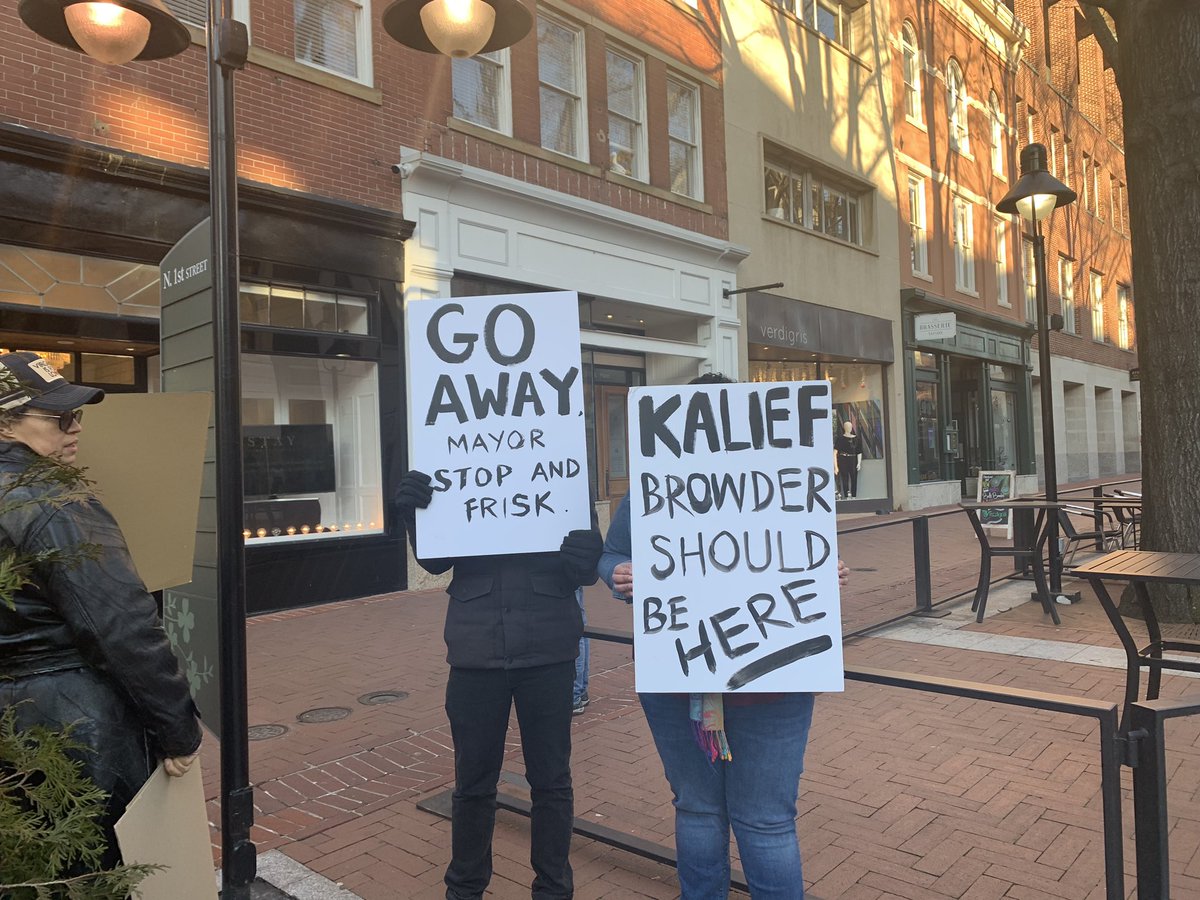 N. 1st STREET
GO
AWAY,
MAYOR
STOP AND
FRISK.
KALIEF
BROWDER
SHOULD
BE HERE
verdigris
BRASSERIE
STAY